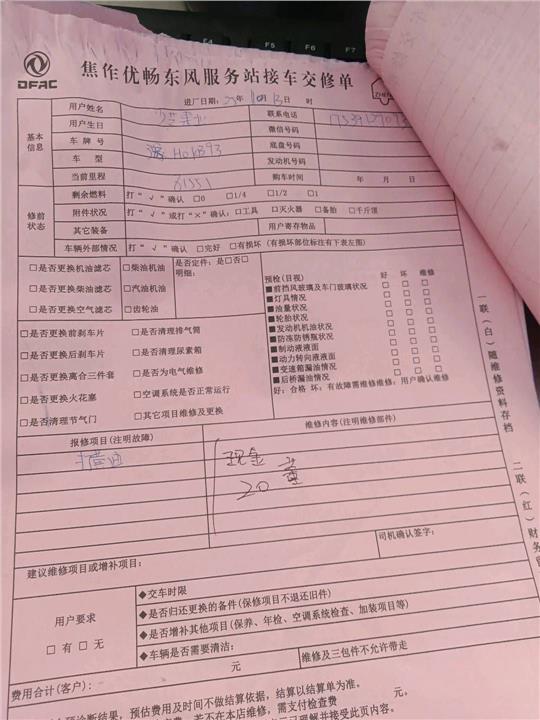 F4 F5 F6 F7
DFAC
焦作优畅东风服务站接车交修单
进厂日期: 年 10月 13日 时
基本信息
用户姓名
联系电话
用户生日
微信号码
车牌号
底盘号码
车型
发动机号码
当前里程 81551
购车时间 年 月 日
修前状态
剩余燃料 打“√”确认 □0 □1/4 □1/2 □1
附件状况 打“√”或打“×”确认:□工具 □灭火器 □备胎 □千斤顶
其它装备
用户寄存物品
车辆外部情况 打“√”确认 □完好 □有损坏(有损坏部位标注有下表左图)
□是否更换机油滤芯 □柴油机油 是否定件:是□否□
□是否更换柴油滤芯 □汽油机油 明细:
□是否更换空气滤芯 □齿轮油
□是否更换前刹车片 □是否清理排气筒
□是否更换后刹车片 □是否清理尿素箱
□是否更换离合三件套 □是否为电气维修
□是否更换火花塞 □空调系统是否正常运行
□是否清理节气门 □其它项目维修及更换
预检(目视) 好 坏 维修
■前挡风玻璃及车门玻璃状况 □ □ □
■灯具情况 □ □ □
■油量状况 □ □ □
■轮胎状况 □ □ □
■发动机机油状况 □ □ □
■防冻防锈瓶状况 □ □ □
■制动液液面 □ □ □
■动力转向液液面 □ □ □
■变速箱漏油情况 □ □ □
■后桥漏油情况 □ □ □
好:合格 坏:有故障需维修维修:用户确认维修
报修项目(注明故障)
维修内容(注明维修部件)
现金
20
司机确认签字:
建议维修项目或增补项目:
用户要求
□有 □无
◆交车时限
◆是否归还更换的备件(保修项目不退还旧件)
◆是否增补其他项目(保养、年检、空调系统检查、加装项目等)
◆车辆是否需要清洁:
费用合计(客户): 元
维修及三包件不允许带走
诊断结果,预估费用及时间不做结算依据,结算以结算单为准。
若不在本店维修,需支付检查费 元,
已理解并接受此页内容。
一联(白)随维修资料存档
二联(红)财务